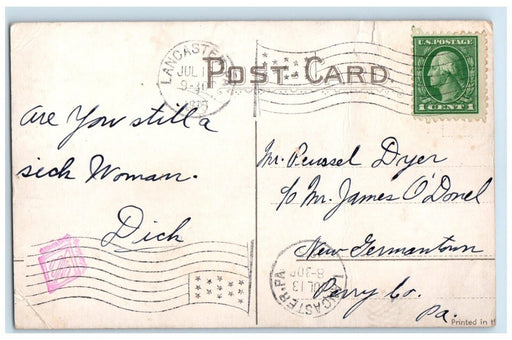 LANCASTER
JUL 1
POST-CARD.
U.S. POSTAGE
1 CENT 1
Are You still a
sick Woman.
Dick
Mr. Russel Dyer
c/o Mr. James O'Donel
New Germantown
Perry Co.
Pa.
LANCASTER, PA
JUL 13
8-30P
Printed in